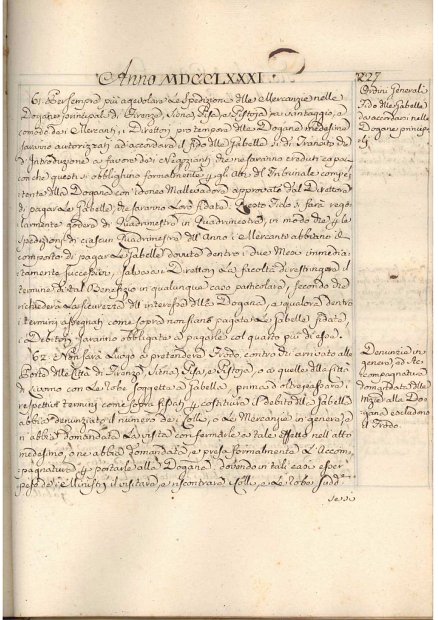 Anno MDCCLXXXI
61. Per sempre più agevolare Le Spedizioni dlle Mercanzie nelle
Dogane principali di Firenze, Siena, Pisa, e Pistoja a vantaggio, e
comodo dei Mercanti, i Direttori pro tempore dlle Dogane medesime
saranno autorizzati ad accordare il fido dlle Gabelle, sì di Transito che
d'Introduzione a favore dei Negozianti che ne saranno creduti capaci
con che questi si obblighino formalmente p gli Atti del Tribunale compe
tente dlla Dogana con idoneo Mallevadore approvato dal Direttore
di pagare Le Gabelle, che saranno Loro fidate. Questo Fido si farà rego
larmente godere di Quadrimestre in Quadrimestre, in modo che p le
Spedizioni di ciascun Quadrimestre dell'Anno i Mercanti abbiano il
comporto di pagar Le Gabelle dovute dentro i due Mesi immedia
tamente successivi, salva ai Direttori La facoltà di restringere il
termine di tal Benefizio in qualunque caso particolare, secondo che
richiederà La sicurezza dll'interesse dlla Dogana, e qualora dentro
i termini assegnati come sopra non siano pagate Le Gabelle fidate,
i Debitori saranno obbligati a pagarle col quarto più di esse.
62. Non sarà Luogo a pretendere Frodo, contro chi arrivato alle
Porte dlle Città di Firenze, Siena, Pisa, e Pistoja, o a quelle dlla Città
di Livorno con Le robe soggette a Gabella, prima d'oltrepassare i
respettivi termini come sopra fissati p costituire il debito dlla Gabella
abbia denunziato il numero dei Colli, o Le Mercanzie in genere, o
n'abbia domandata La visita con fermarle a tale effetto nell'atto
medesimo, o ne abbia domandata, e presa formalmente L'Accom
pagnatura p portarle alla Dogana, dovendo in tali casi esser
i Ministri il visitare, e riscontrare i Colli, e Le robe sudd.
227
Ordini Generali
Fido dlle Gabelle
da accordarsi nelle
Dogane princip
Denunzie in
genere, ed Ac
compagnatura
domandata dlle
alla Do
gana escludono
il Frodo.